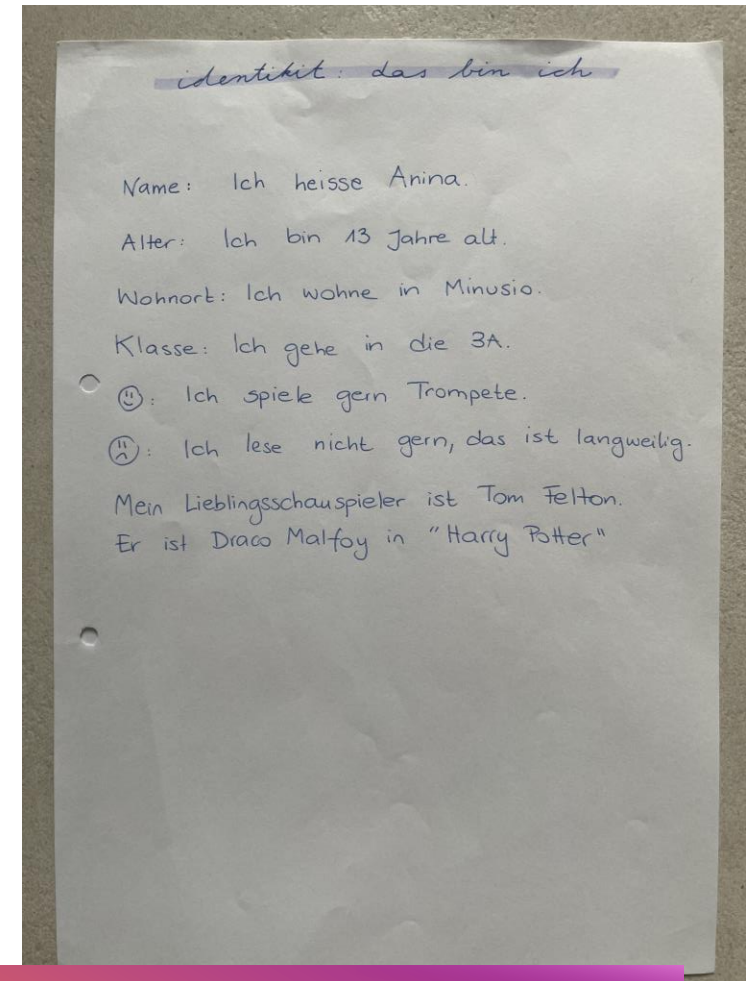 identikit: das bin ich
Name: Ich heisse Anina.
Alter: Ich bin 13 Jahre alt.
Wohnort: Ich wohne in Minusio.
Klasse: Ich gehe in die 3A.
☺: Ich spiele gern Trompete.
☹: Ich lese nicht gern, das ist langweilig.
Mein Lieblingsschauspieler ist Tom Felton.
Er ist Draco Malfoy in "Harry Potter"